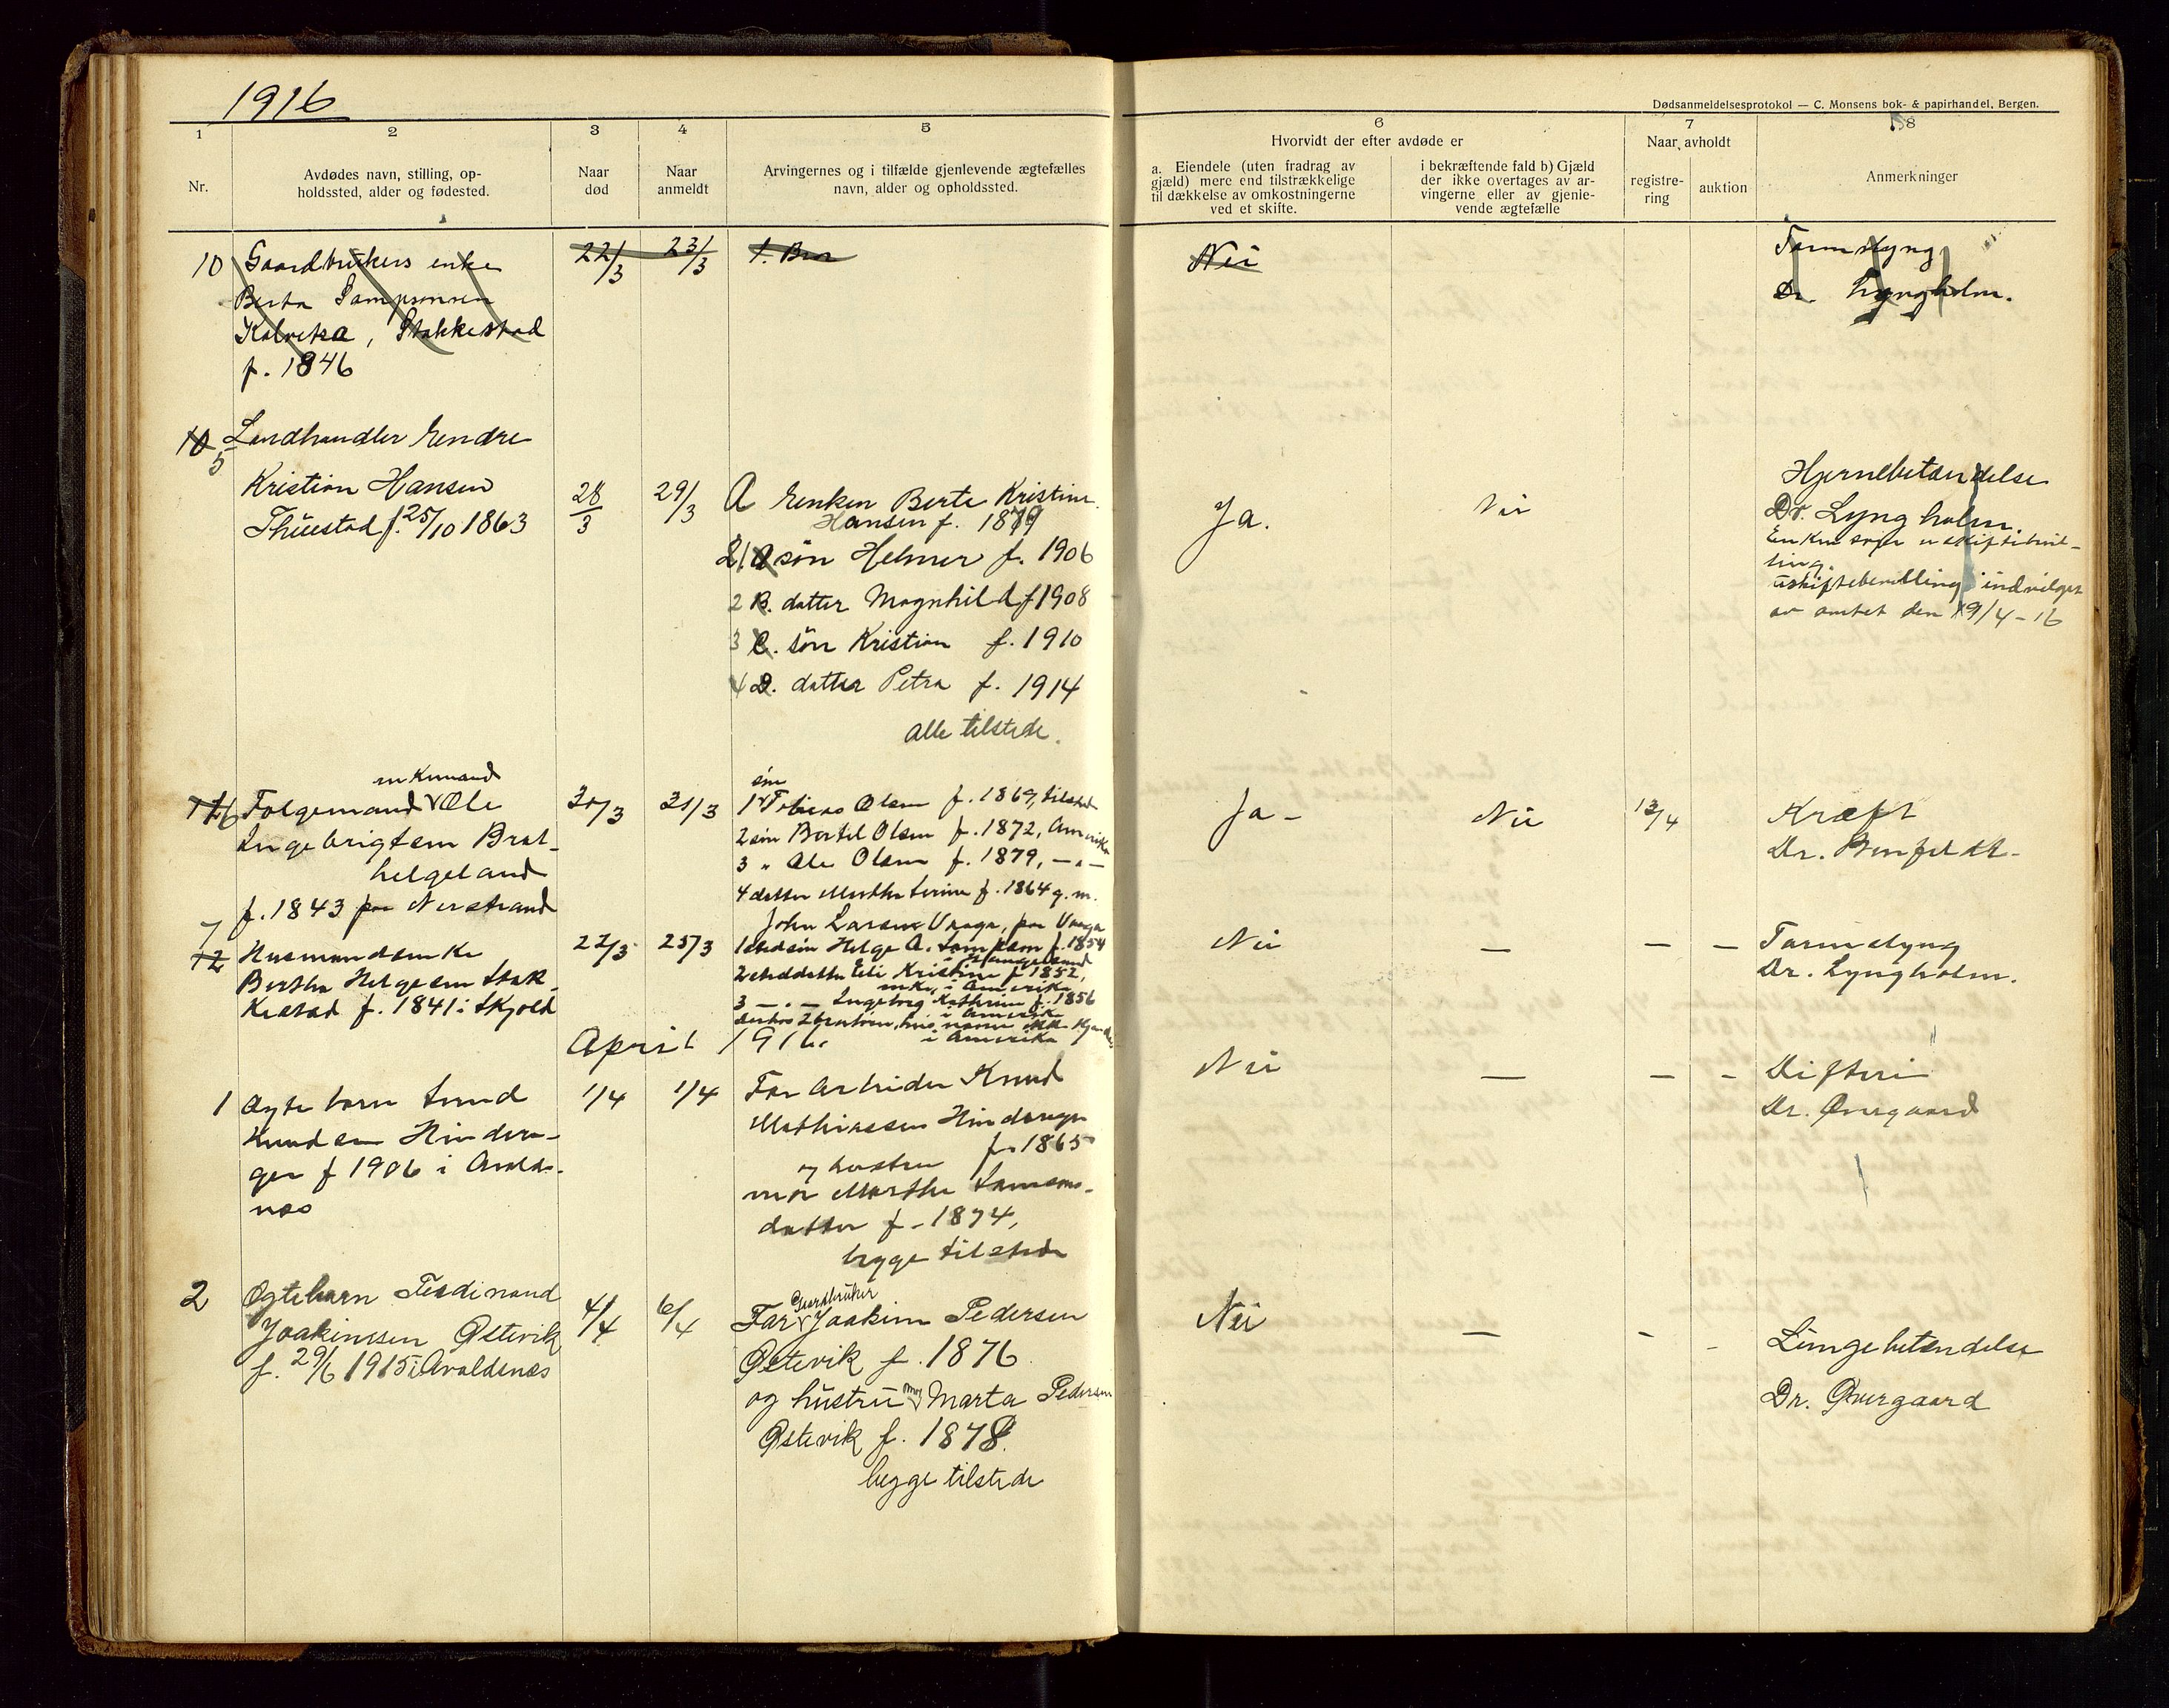 1916
Dødsanmeldelsesprotokol — C. Monsens bok- & papirhandel, Bergen.
1
2
3
4
5
6
7
8
Nr.
Avdødes navn, stilling, op-
holdssted, alder og fødested.
Naar
død
Naar
anmeldt
Arvingernes og i tilfælde gjenlevende ægtefælles
navn, alder og opholdssted.
Hvorvidt der efter avdøde er
a. Eiendele (uten fradrag av
gjæld) mere end tilstrækkelige
til dækkelse av omkostningerne
ved et skifte.
i bekræftende fald b) Gjæld
der ikke overtages av ar-
vingerne eller av gjenle-
vende ægtefælle
Naar avholdt
registre-
ring
auktion
Anmerkninger
10
Gaardbrukers enke
Berta Sampsonsen
Kalvetra, Stakkestad
f. 1846
22/3
23/3
1. Bror
Nei
Tarmslyng
Dr. Lyngholm.
10
5
Landhandler Endre
Kristian Hansen
Thuestad f. 25/10 1863
28/3
29/3
A Enken Berte Kristine
Hansen f. 1879
1 søn Helmer f. 1906
2 B. datter Magnhild f 1908
3 C. søn Kristian f. 1910
4 D. datter Petra f. 1914
alle tilstede.
Ja.
Nei
Hjernebetændelse
Dr. Lyngholm.
Enken søger uskiftebevil-
ling.
uskiftebevilling indvilget
av amtet den 19/4-16
11
6
enkemand
Folgemand Ole
Ingebrigtsen Brat-
helgeland
f. 1843 paa Nerstrand
30/3
31/3
søn
1 Tobias Olsen f. 1869, tilsted
2 søn Bertel Olsen f. 1872, Amerika
3 " Ole Olsen f. 1879, — " —
4 datter Marthe Serine f. 1864 g. m.
John Larsen Vraga, paa Vraga
Ja -
Nei
13/4
Kræft
Dr.
7
12
Husmandsenke
Bertha Helgesen Stak-
kestad f. 1841 i Skjold
22/3
25/3
1 stedsøn Helge A. Samsson f. 1854
i Haugesund
2 steddatter Eli Kristine f 1852,
enke, i Amerika
3 — " — Ingeborg Kathrine f. 1856
i Amerika
desuten 2 brorbørn, hvis navne ikke kjendes
i Amerika
Nei
—
—
—
Tarmslyng
Dr. Lyngholm.
April 1916.
1
Ægtebarn
Knudsen Hindera-
ger f 1906 i Avalds-
nes
1/4
1/4
Far Arbeider Knud
Mathiassen Hinderager
f. 1865
og hustru
mor Marthe Samsons-
datter f. 1874,
begge tilstede
Nei
—
—
-
Difteri
Dr. Øvergaard
2
Ægtebarn Ferdinand
Joakimsen Østevik
f. 29/6 1915 i Avaldsnes
4/4
6/4
Gaardbruker
Far Joakim Pedersen
Østevik f. 1876
og hustru mor Marta Pedersen
Østevik f. 1878.
begge tilstede
Nei
—
-
-
Lungebetændelse
Dr. Øvergaard